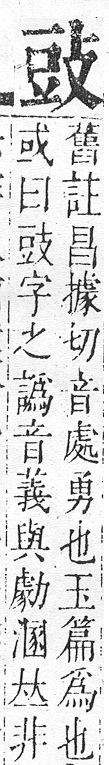 豉
舊註昌據切音處勇也玉篇爲也
或曰豉字之譌音義與勮溷𠀤非